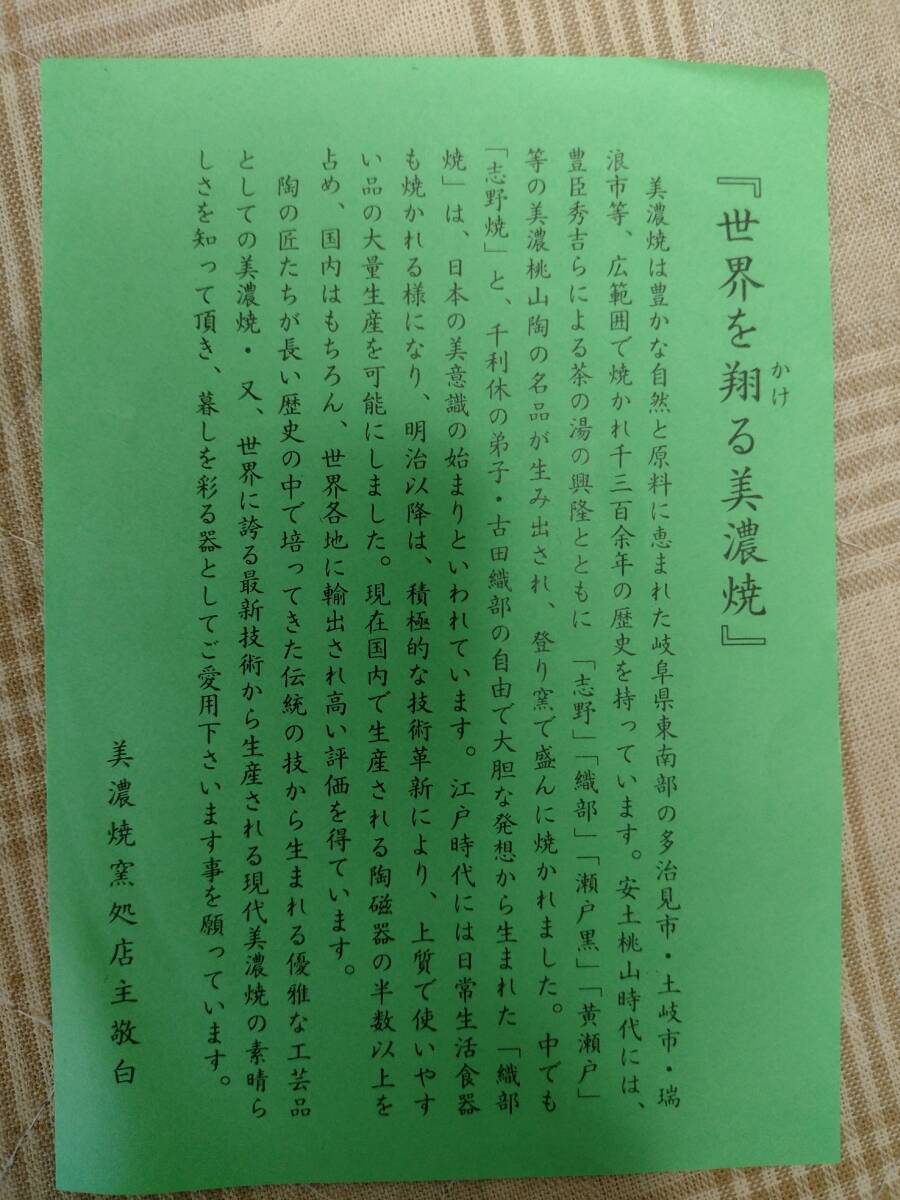 『世界を翔る美濃焼』
かけ
美濃焼は豊かな自然と原料に恵まれた岐阜県東南部の多治見市・土岐市・瑞
浪市等、広範囲で焼かれ千三百余年の歴史を持っています。安土桃山時代には、
豊臣秀吉らによる茶の湯の興隆とともに「志野」「織部」「瀬戸黒」「黄瀬戸」
等の美濃桃山陶の名品が生み出され、登り窯で盛んに焼かれました。中でも
「志野焼」と、千利休の弟子・古田織部の自由で大胆な発想から生まれた「織部
焼」は、日本の美意識の始まりといわれています。江戸時代には日常生活食器
も焼かれる様になり、明治以降は、積極的な技術革新により、上質で使いやす
い品の大量生産を可能にしました。現在国内で生産される陶磁器の半数以上を
占め、国内はもちろん、世界各地に輸出され高い評価を得ています。
陶の匠たちが長い歴史の中で培ってきた伝統の技から生まれる優雅な工芸品
としての美濃焼・又、世界に誇る最新技術から生産される現代美濃焼の素晴ら
しさを知って頂き、暮しを彩る器としてご愛用下さいます事を願っています。
美濃焼窯処店主敬白